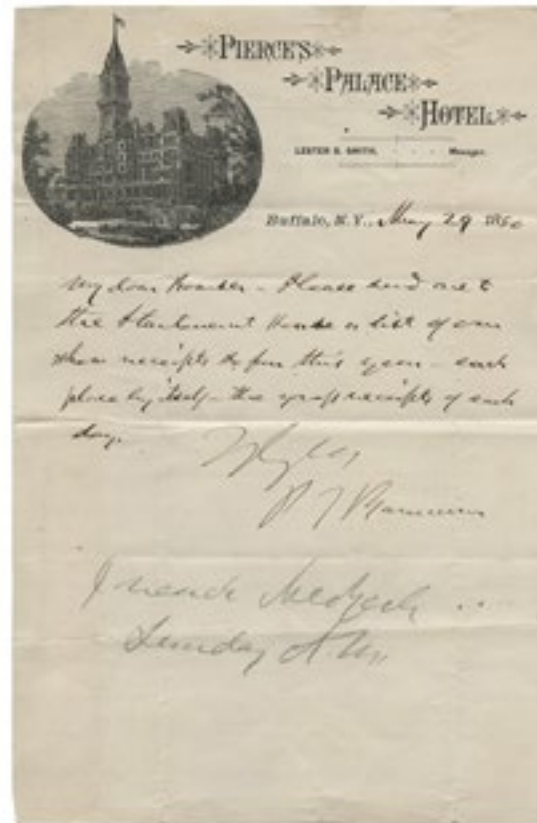 PIERCE'S
PALACE
HOTEL
LESTER S. SMITH, Manager.
Buffalo, N. Y., May 29 1880
My dear - Please send me to
the House a list of our
show receipts so far this year - each
place by itself - the gross receipts of each
day.
P T Barnum
I reach
Sunday A.M.